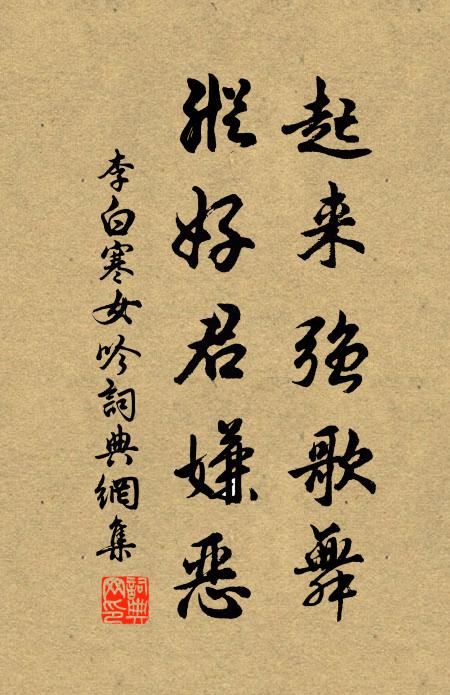 起来强歌舞
纵好君嫌恶
李白寒女吟詞典網集
詞典
网印